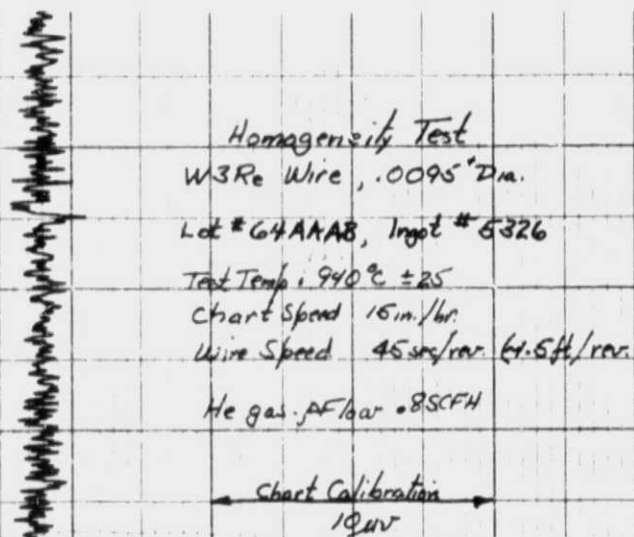 Homogeneity Test
W3Re Wire, .0095" Dia.
Lot #64AAAB, Ingot #5326
Test Temp. 940°C ±25
Chart Speed 15in./hr.
Wire Speed 45sec/rev.
He gas Flow .8SCFH
Chart Calibration
10μv